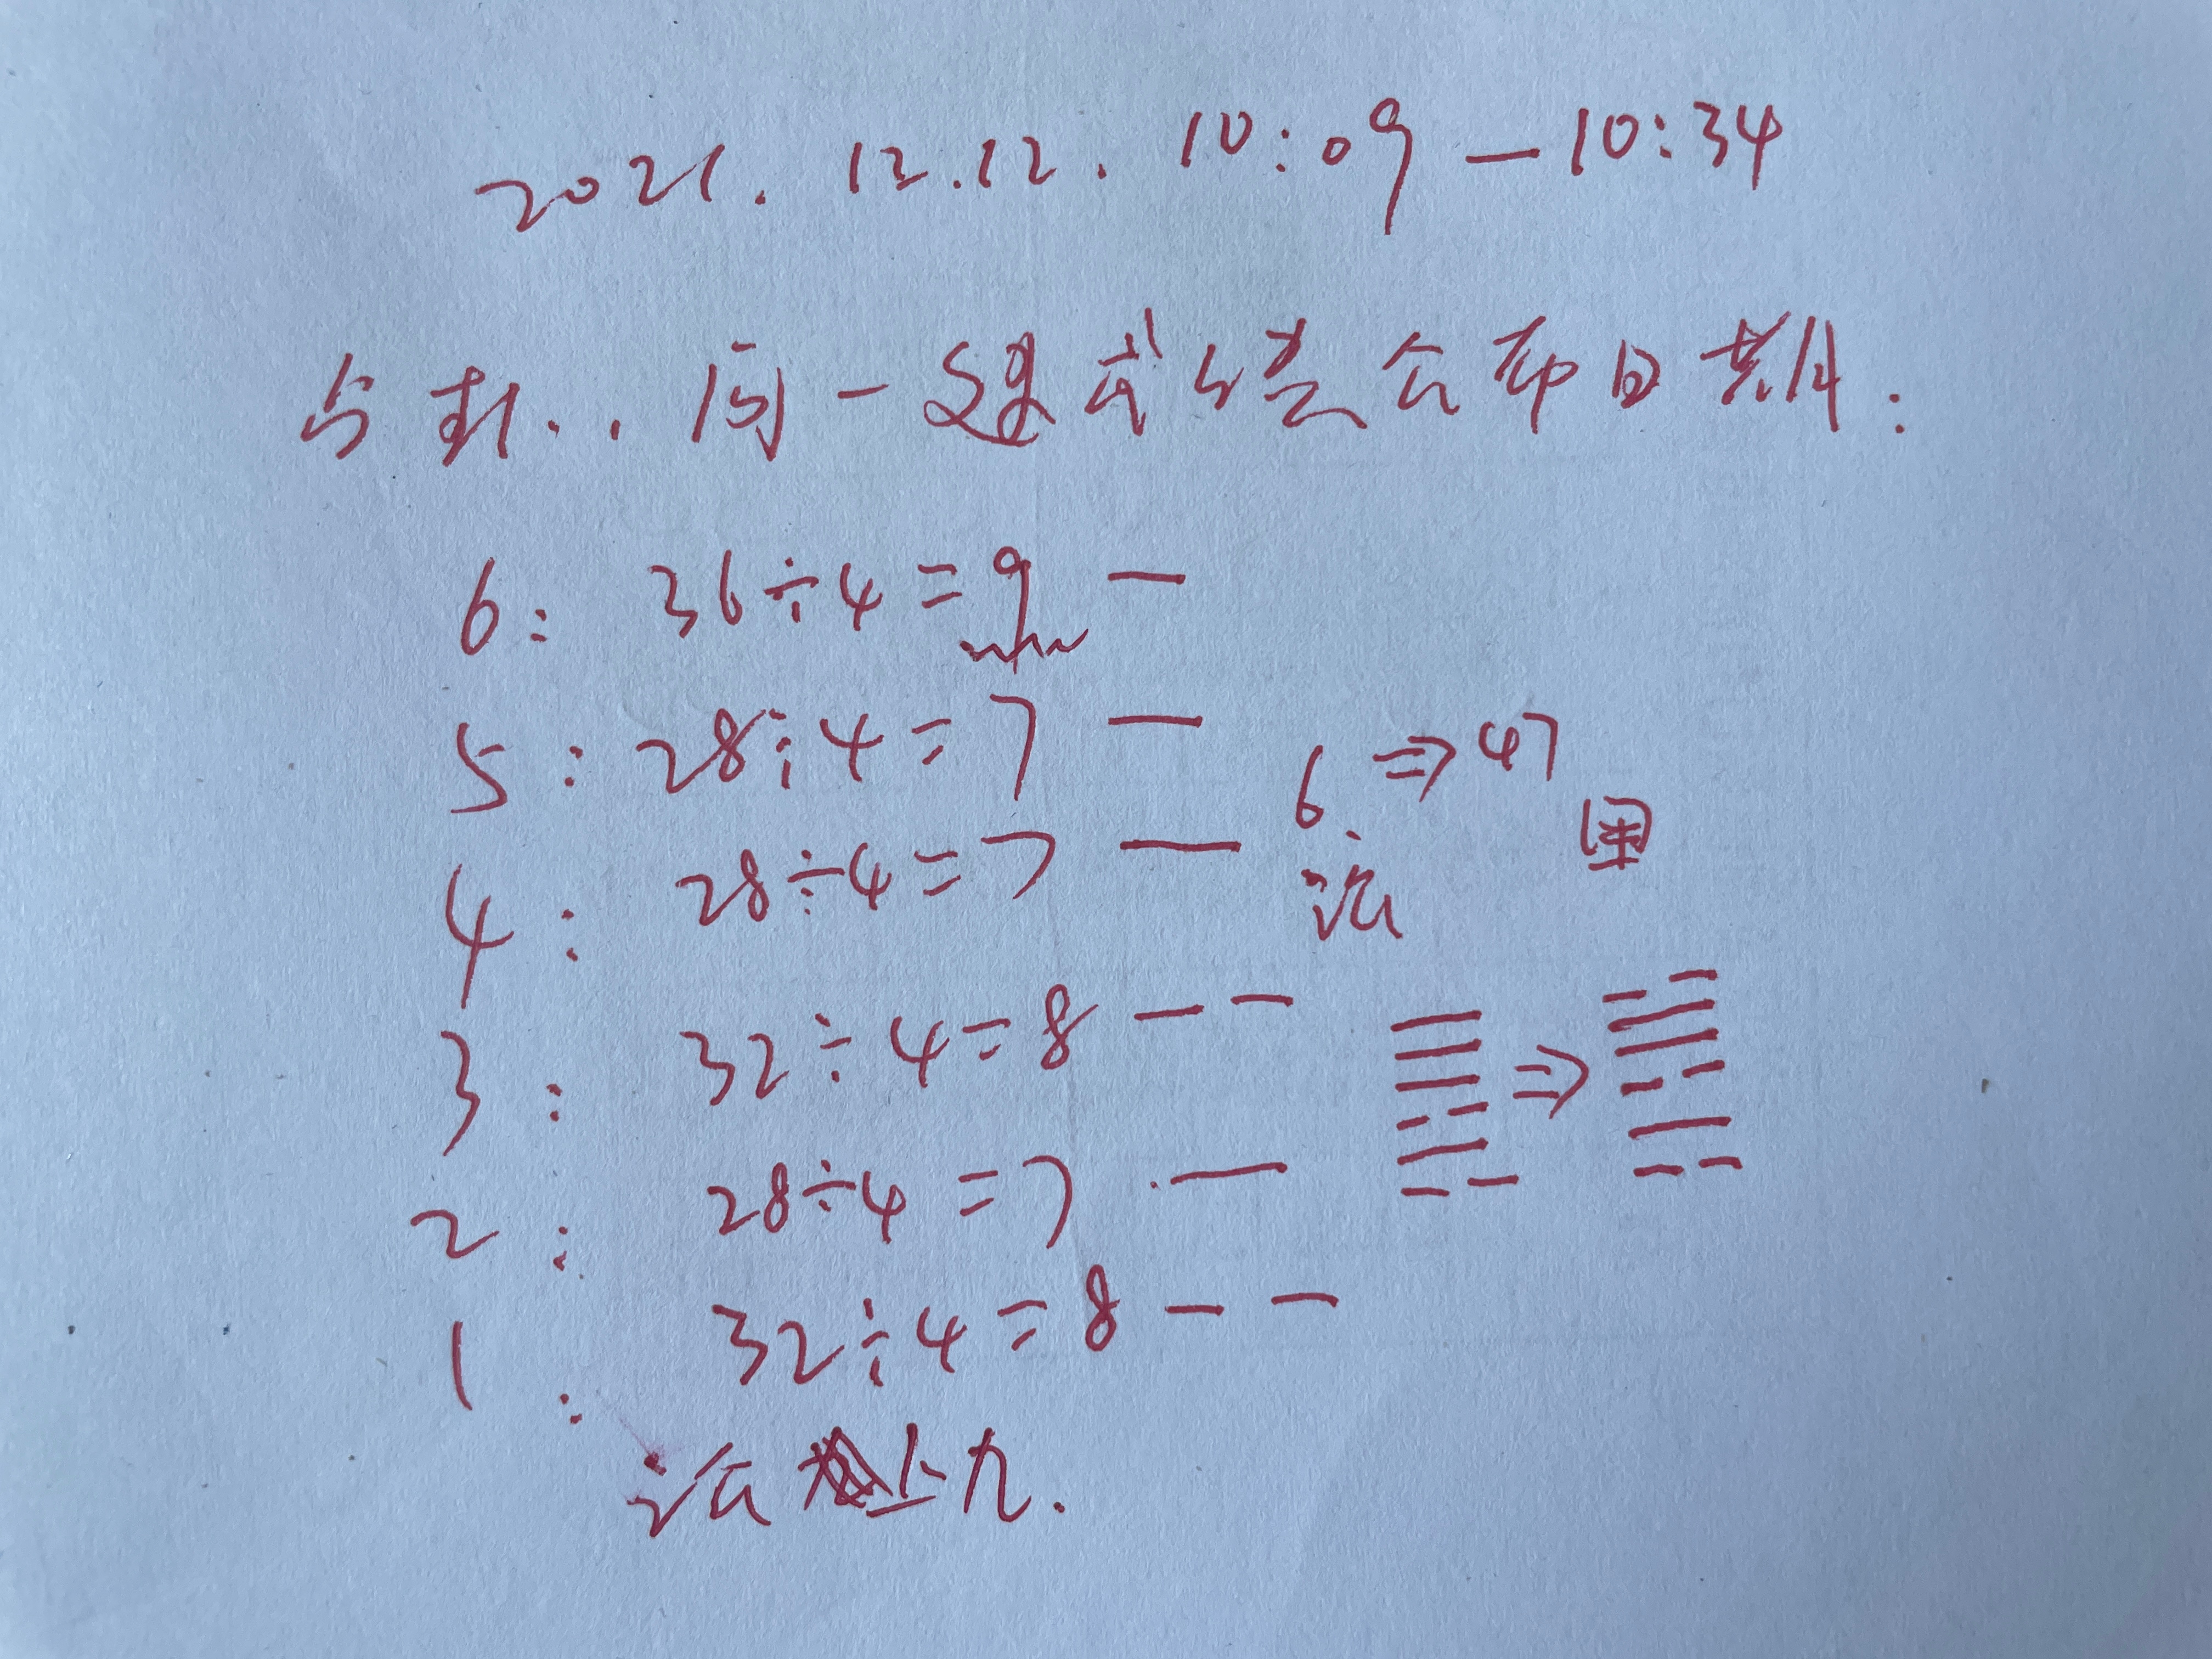 2021.12.12. 10:09 — 10:34
占卦..问一建成绩公布日期:
6: 36÷4=9 —
5: 28÷4=7 —
6. ⇒ 47
讼 困
4: 28÷4=7 —
3: 32÷4=8 — —
2: 28÷4=7 —
⇒
1: 32÷4=8 — —
讼上九.